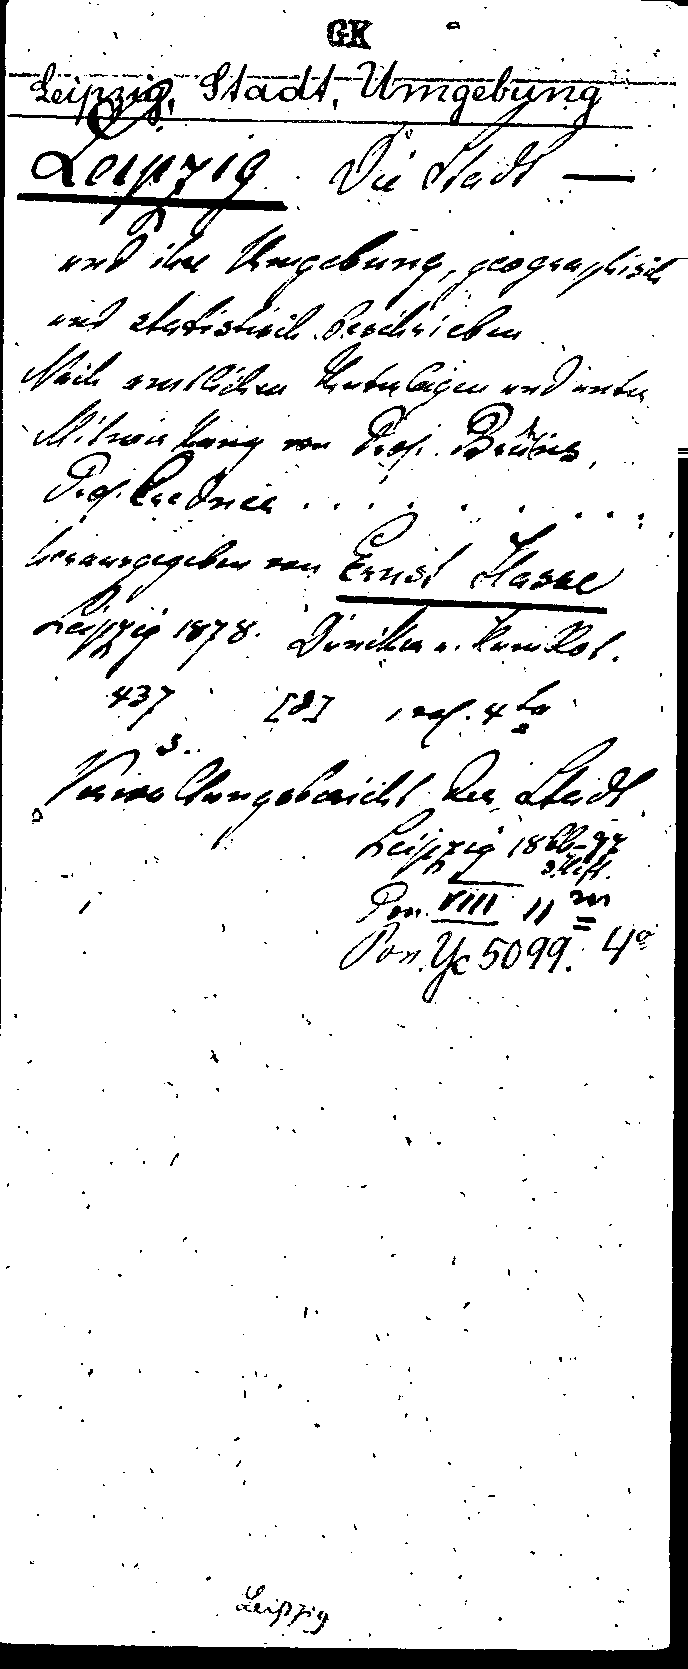 GK
Leipzig, Stadt, Umgebung
Leipzig Die Stadt —
und ihre Umgebung, geographisch
und statistisch beschrieben
Nach amtlichen Unterlagen und unter
Mitwirkung von Prof. Bruhns,
Prof. Credner . . . . . . . .
herausgegeben von Ernst Hasse
Leipzig 1878. Duncker u. Humblot.
437 [8] 4to
S.
Verwaltungsbericht der Stadt
Leipzig 1866-77
3. Heft.
Pon. VIII 11 m
Pon. Yc 5099. 4°
Leipzig